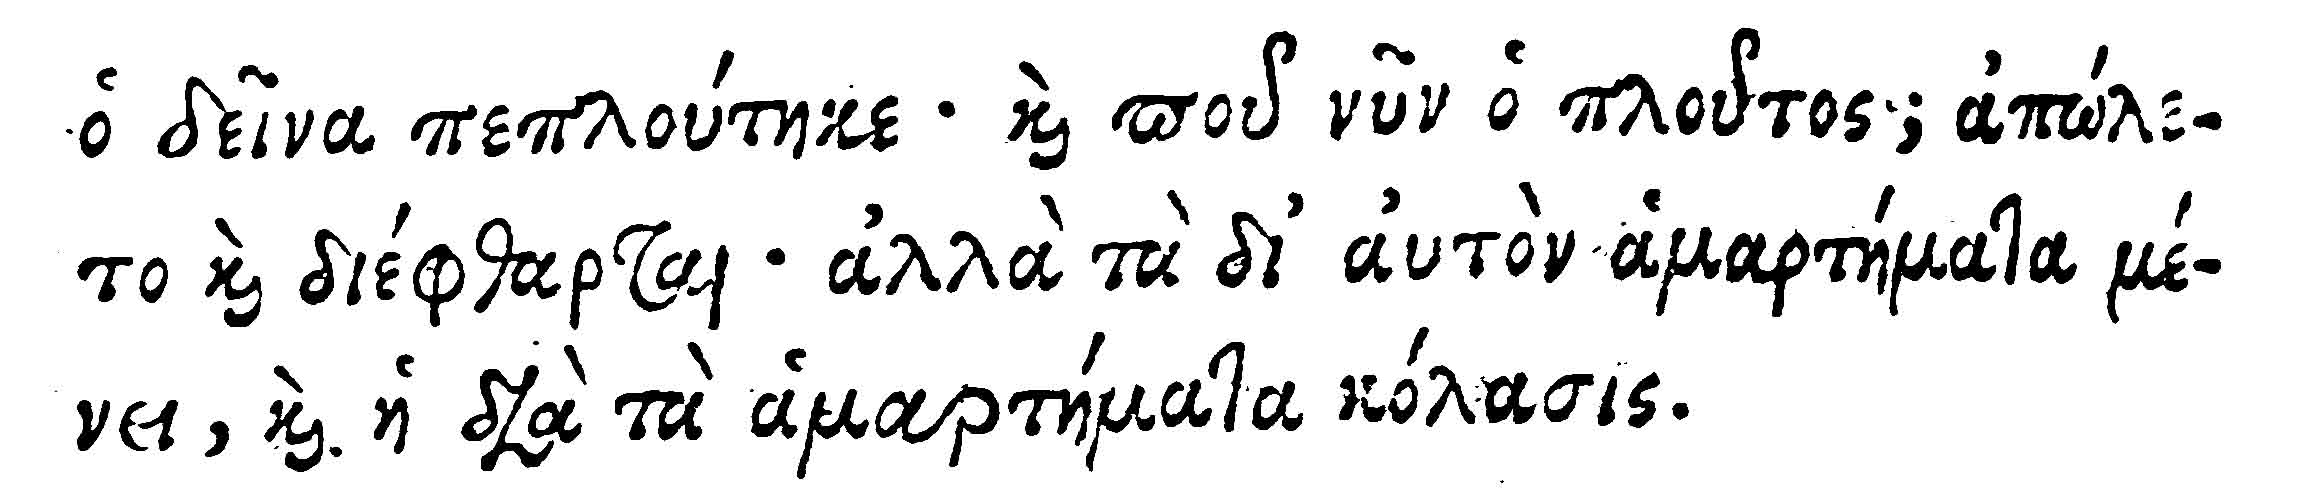 ὁ δεῖνα πεπλούτηκε · ϗ̀ ποῦ νῦν ὁ πλοῦτος; ἀπώλε-
το ϗ̀ διέφθαρται · ἀλλὰ τὰ δι’ ἀυτὸν ἁμαρτήματα μέ-
νει, ϗ̀ ἡ διὰ τὰ ἁμαρτήματα κόλασις.